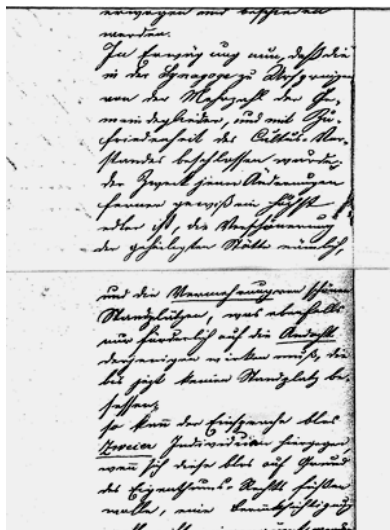 erwogen und beschieden
werden.
In Erwägung nun, daß die
in der Synagoge zu
von der Mehrzahl der Ge-
meindeglieder, und mit Zu-
friedenheit des Cultus-Vor-
standes beschlossen wurde;
der Zweck jener Änderungen
ferner gewiß ein höchst
edler ist, die Verschönerung
der geheiligten Stätte nämlich,
und die Vermehrung von schönen
Standplätzen, was ebenfalls
nur förderlich auf die Andacht
derjenigen wirken muß, die
bis jezt keinen Standplatz be-
sessen;
so kann der Einsprache blos
Zweier Individuen hingegen,
wenn sich diese blos auf Grund
des Eigenthums-Rechts fußen
wolle, eine Berücksichtigung